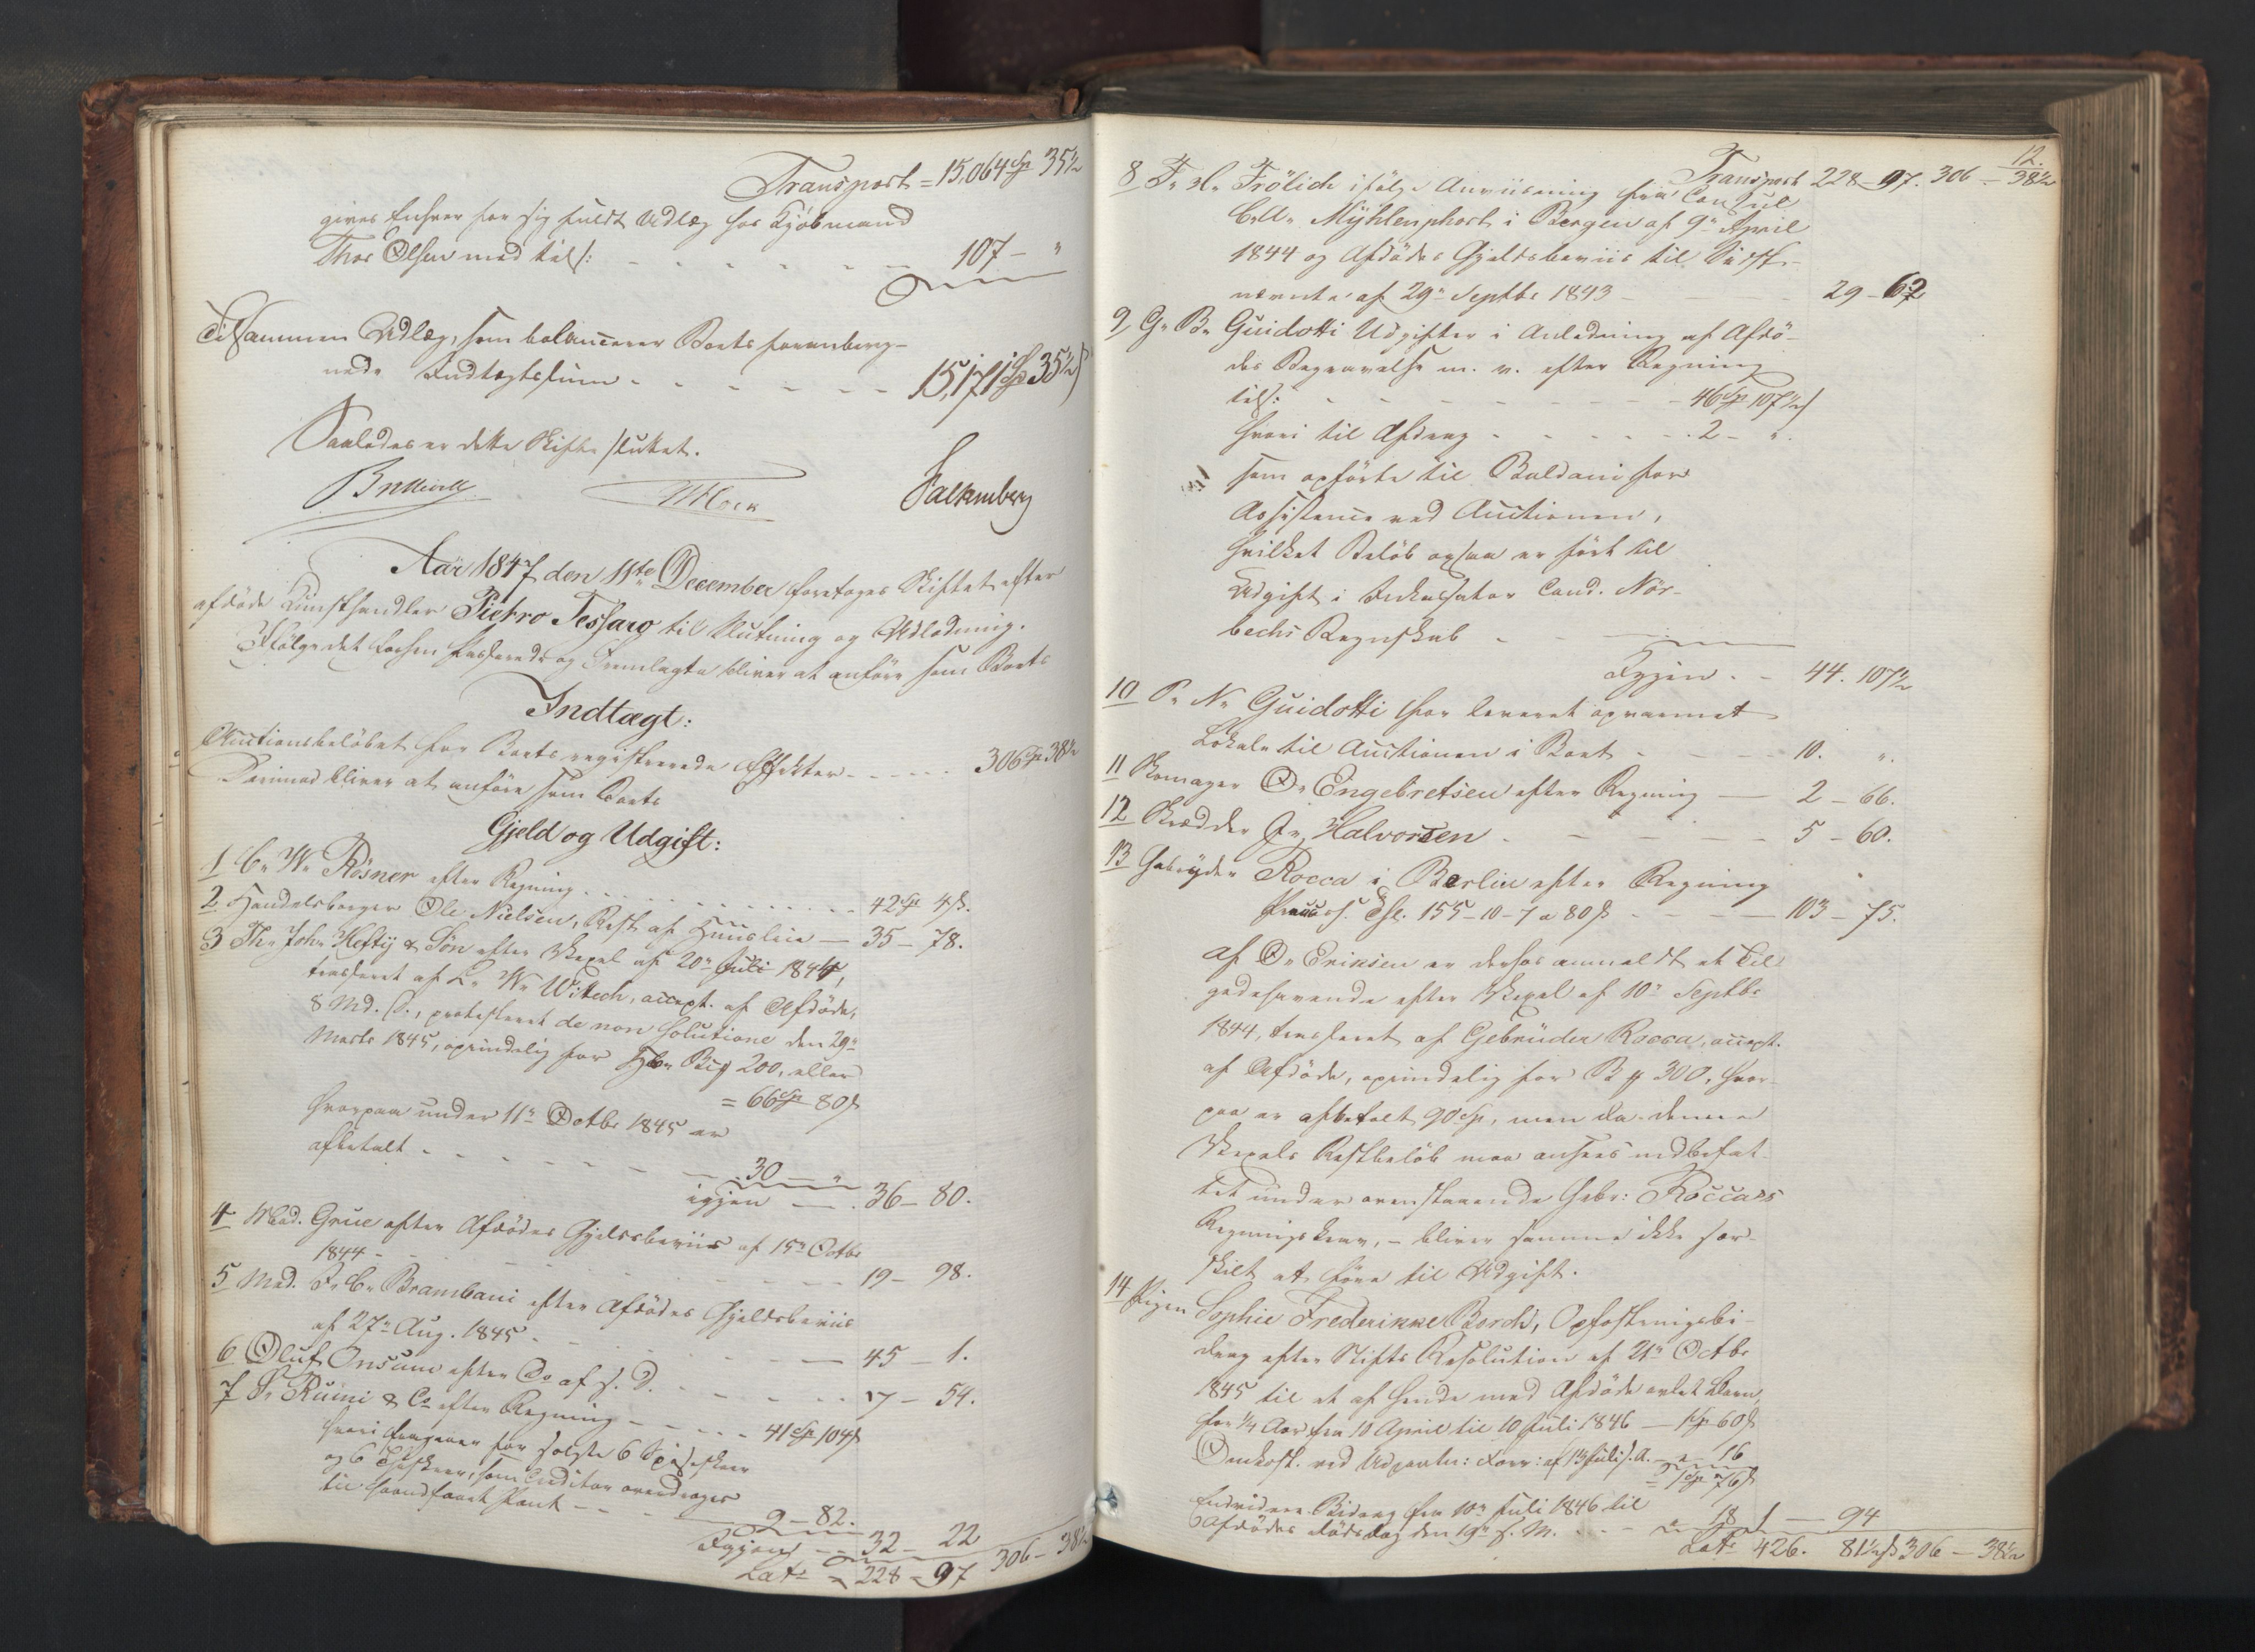 Transport = 15,064 Sp 35½
gives Enhver for sig fuldt Udlæg hos Kjøbmand
Thor Olsen med tils: - - - - 107 - "
Tilsammen Udlæg, som balancerer Boets foranbereg-
nede Indtægtssum - - - - - 15,171 Sp 35½ s
Saaledes er dette Skifte sluttet.
Falkenberg
Aar 1847 den 11te December foretoges Skiftet efter
afdøde Kunsthandler Pietro Tessaro til Slutning og Udlodning.
Ifølge det forhen passerede og Fremlagte bliver at anføre som Boets
Indtægt:
Auctionsbeløbet for Boets registrerede Effekter - - - 306 Sp 38½
Derimod bliver at anføre som Boets
Gjeld og Udgift:
1 C. W. Rösner efter Regning - - - - 42 Sp 4 s.
2. Handelsborger Ole Nielsen, Rest af Huusleie — 35 - 78.
3 Th. Joh. Heftÿ & Søn efter Vexel af 20de Juli 1844,
trasseret af L. W. Wittech, accept. af Afdøde,
8 Md. d., protesteret de non solutione den 29de
Marts 1845, oprindelig for Hbr. Bco 200, eller
= 66 Sp 80 s
hvorpaa under 11te Octbr 1845 er
afbetalt - - - - - 30 - "
igjen — 36 - 80.
4 Mad. Grue efter Afdødes Gjeldsbeviis af 15de Octbr
1844 - - - - 19 - 98.
5 Mad. F. C. Brambani efter Afdødes Gjeldsbeviis
af 27de Aug. 1845 - - - - 45 - 1.
6 Oluf Onsum efter Do af s. D. - - - - 17 - 54.
7 P. Rumi & Co efter Regning - - - 41 Sp 104 s
hvori fragaaer for solgte 6 Spiseskeer
og 6 Theskeer, som Creditor overdroges
til haandfaaet Pant - - 9 - 82.
Igjen - - 32 - 22
Lats = 228 - 97 306 - 38½
12.
Transport 228 - 97. 306 - 38½
8 F. H. Frölich ifølge Anviisning fra Consul
C. M. Mÿhlenphort i Bergen af 9de April
1844 og Afdødes Gjeldsbeviis til Sidst-
nævnte af 29de Septbr 1843 - - - 29 - 62
9 G. B. Guidotti Udgifter i Anledning af Afdø-
des Begravelse m. v. efter Regning
tils: - - - - - - 46 Sp 107½ s
hvori til Afdrag - - - - - 2 - ".
som opførte til Baldani for
Assistence ved Auctionen,
hvilket Beløb ogsaa er ført til
Udgift i Inkassator Cand. Nør-
bechs Regnskab - -
Igjen. - 44. 107½
10 P. N. Guidotti for leveret opvarmet
Lokale til Auctionen i Boet - - - 10. ".
11 Skomager O. Engebretsen efter Regning — 2 - 66.
12 Skrædder J. Halvorsen - - - - 5 - 60.
13 Gebrÿder Rocca i Berlin efter Regning
Preuss. Thl. 155 - 10 - 7 a 80 s - - - 103 - 75.
Af O. Eriksen er derhos anmeldt et Til-
godehavende efter Vexel af 10de Septbr
1844, trasseret af Gebrüder Rocca, accept.
af Afdøde, oprindelig for B 300, hvor-
paa er afbetalt 90 Sp, men da denne
Vexels Restbeløb maa ansees indbefat-
tet under ovenstaaende Gebr: Rocca's
Regningskrav, - bliver samme ikke sær-
skilt at føre til Udgift.
14 Pigen Sophie Frederikke Borch, Opfostringsbi-
drag efter Stifts Resolution af 21de Octbr
1845 til et af hende med Afdøde avlet Barn,
for ¼ Aar fra 10 April til 10 Juli 1846 — 1 Sp 60 s
Omkost. ved Udpantn: Forr: af 13 Juli s. A. - " 16
= 1 Sp 76 s
Endvidere Bidrag fra 10de Juli 1846 til
Afdødes Dødsdag den 19de s. M. - - - " 18 1 — 94
Lats 426. 81½ s 306 - 38½